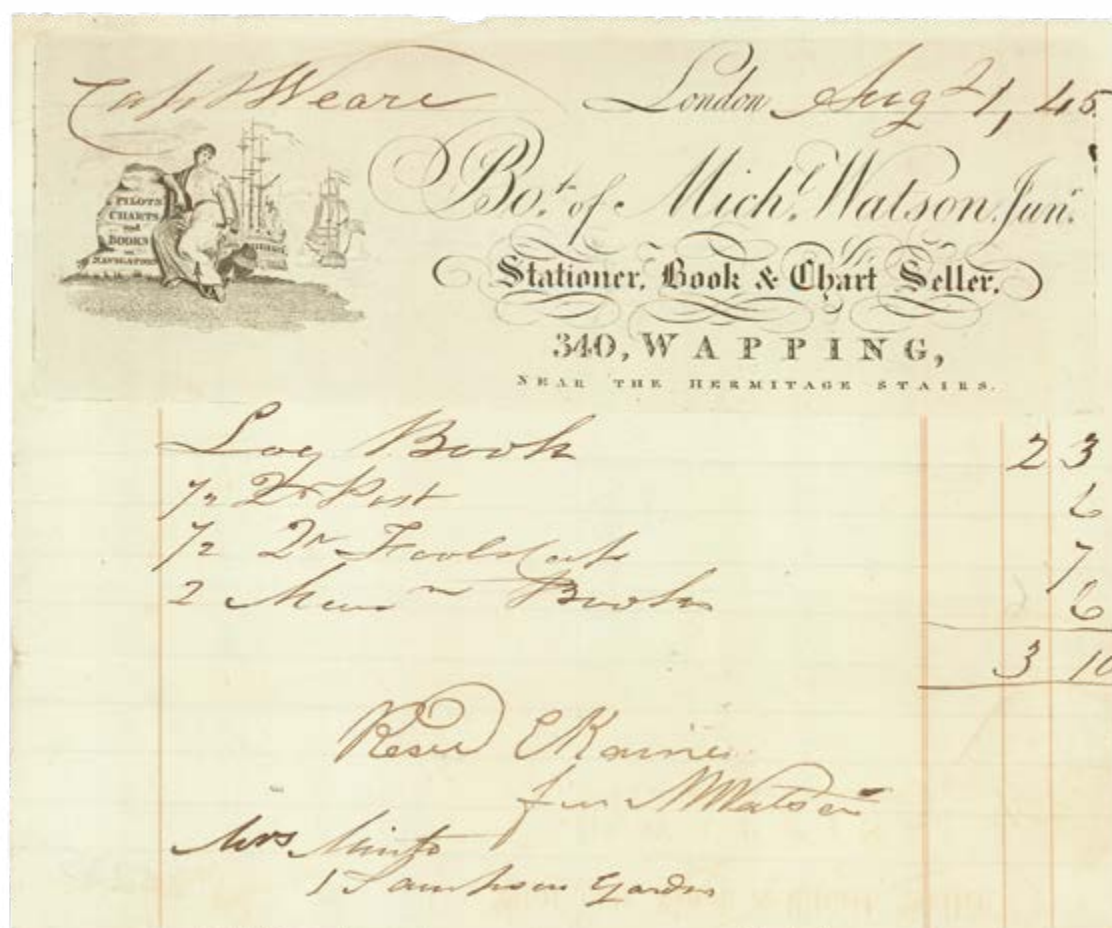 Capt Weare London Aug 21, 45
PILOTS
CHARTS
and
BOOKS
on
NAVIGATION
Bot. of Michl. Watson Junr.
Stationer, Book & Chart Seller.
340, WAPPING,
NEAR THE HERMITAGE STAIRS.
Log Book 2 3
1/2 Qr Post 6
1/2 Qr Foolscap 7
2 Mem Books 6
3 10
Recd
for M Watson
Mrs Minto
1 Gardens